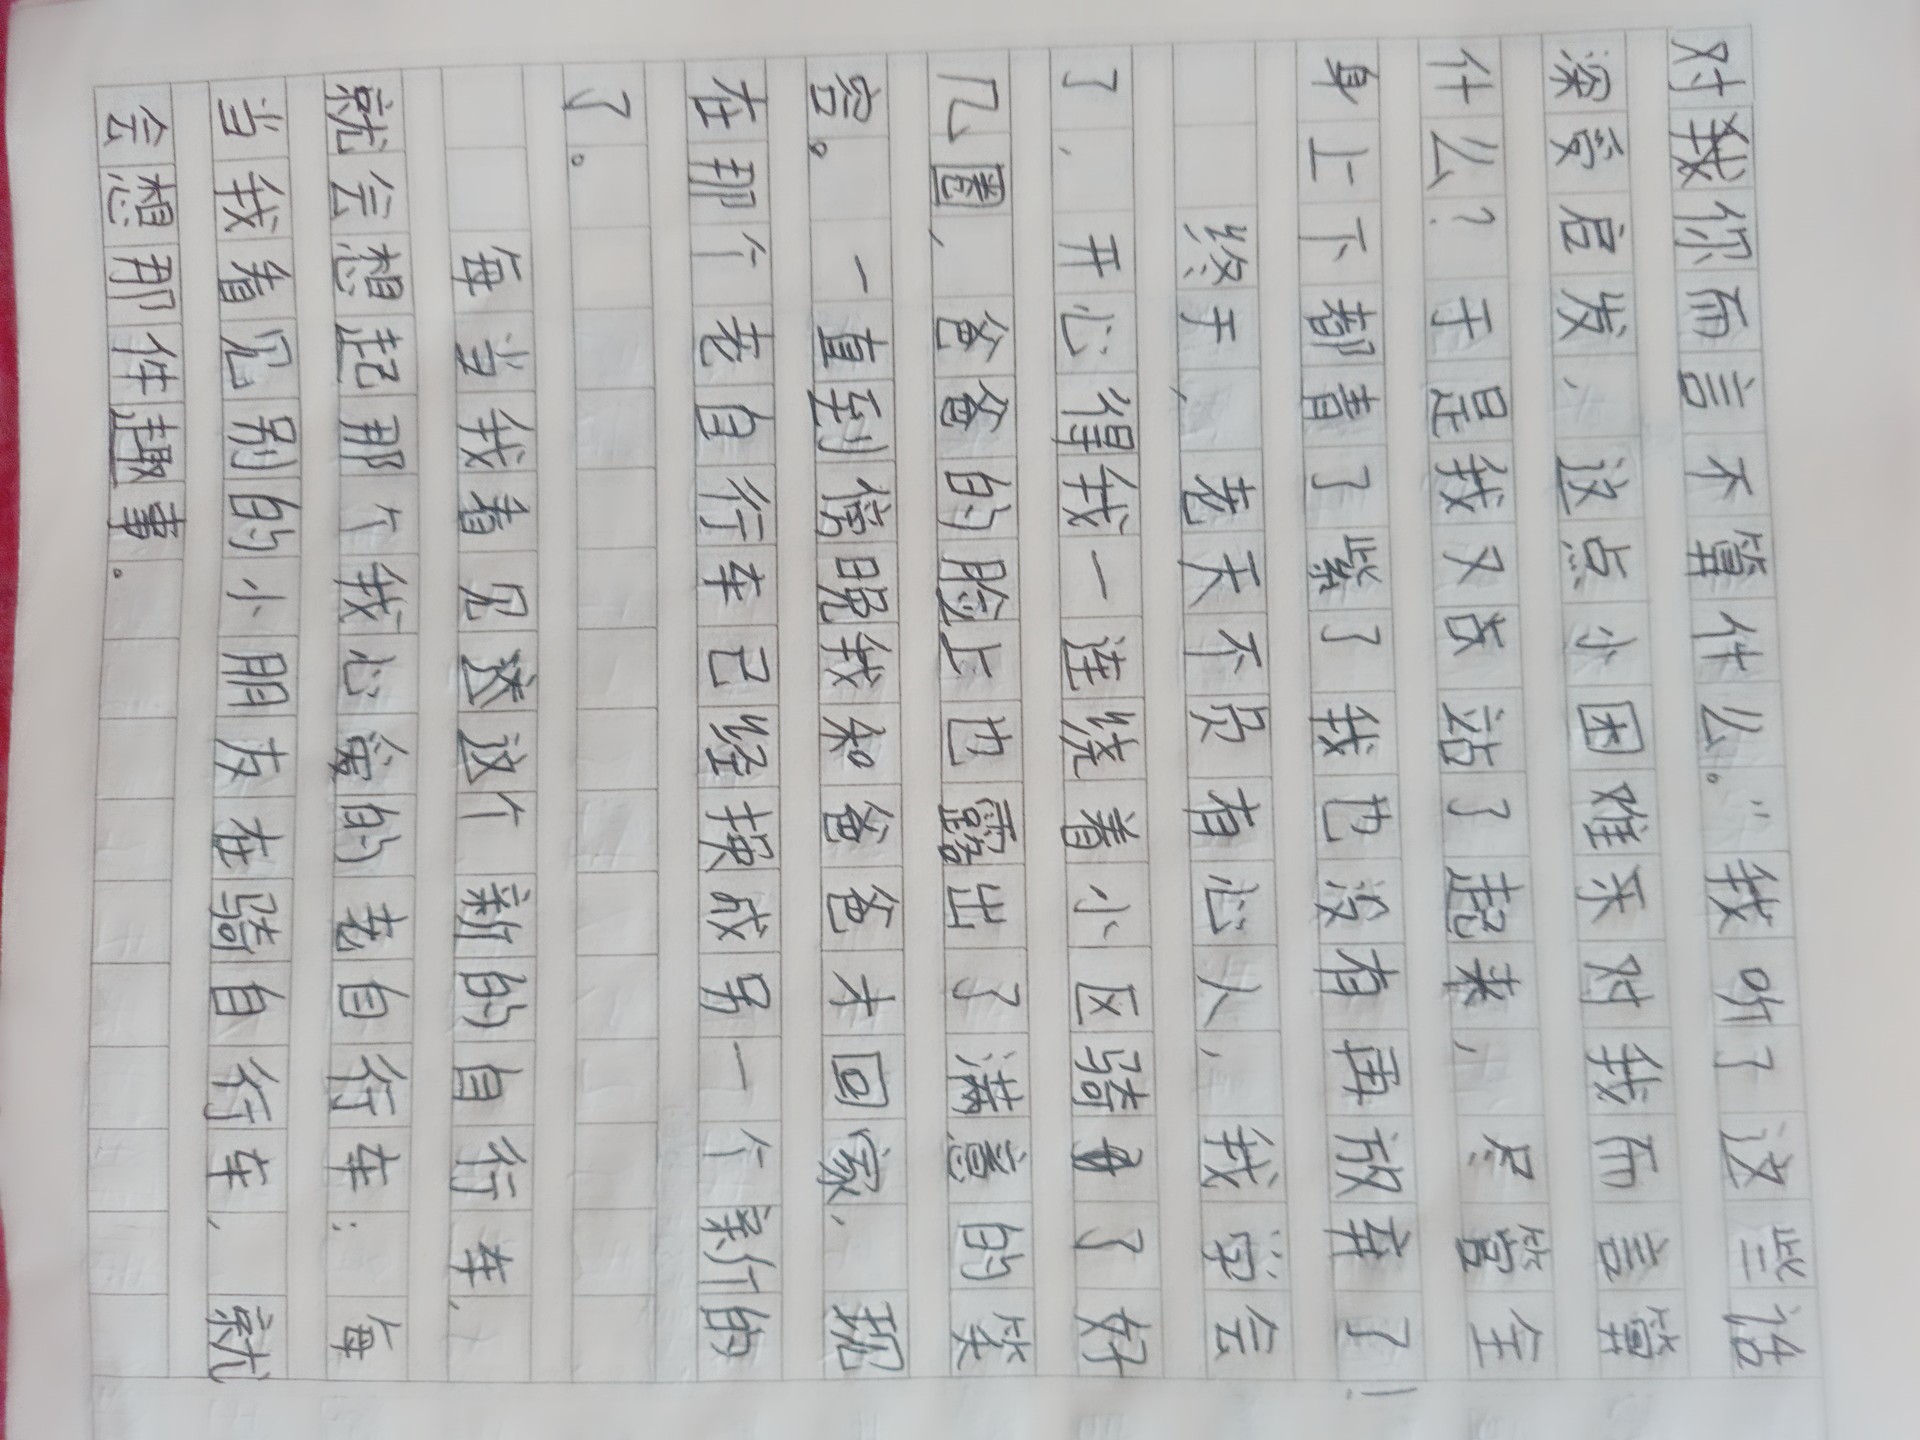 对我你而言不算什么。”我听了这些话
深受启发、这点小困难来对我而言算
什么?于是我又次站了起来,尽管全
身上下都青了紫了我也没有再放弃了!
终于,老天不负有心人,我学会
了、开心得我一连绕着小区骑了好
几圈,爸爸的脸上也露出了满意的笑
容。一直到傍晚我和爸爸才回家、现
在那个老自行车已经换成另一个新的
了。
每当我看见这这个新的自行车,
就会想起那个我心爱的老自行车;每
当我看见别的小朋友在骑自行车、就
会想那件趣事。